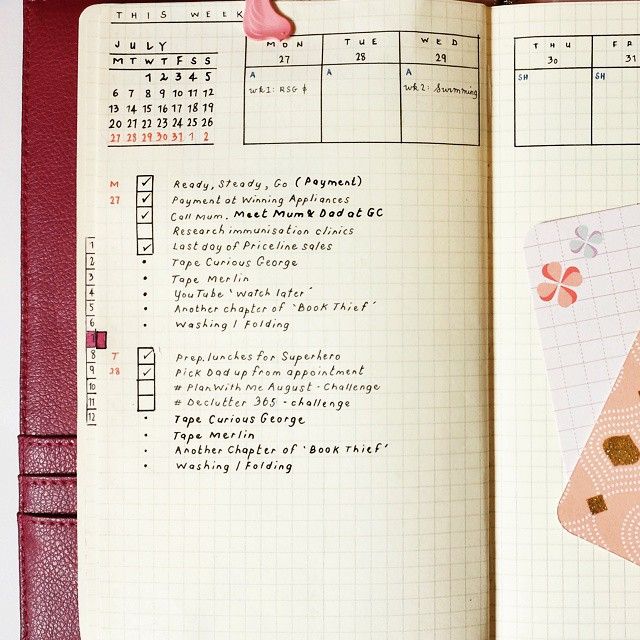 THIS WEEK
JULY
M T W T F S S
1 2 3 4 5
6 7 8 9 10 11 12
13 14 15 16 17 18 19
20 21 22 23 24 25 26
27 28 29 30 31 1 2
MON TUE WED THU FR
27 28 29 30 31
A A A SH SH
wk1: RSG $ wk 2: Swimming
M ✓ Ready, Steady, Go (Payment)
27 ✓ Payment at Winning Appliances
✓ Call Mum. Meet Mum & Dad at GC
Research immunisation clinics
1 ✓ Last day of Priceline sales
2 • Tape Curious George
3 • Tape Merlin
4 • YouTube 'Watch later'
5 • Another chapter of 'Book Thief'
6 • Washing / Folding
7
8 T ✓ Prep. lunches for Superhero
9 28 ✓ Pick Dad up from appointment
10 # PlanWith Me August - Challenge
11 # Declutter 365 - challenge
12 • Tape Curious George
• Tape Merlin
• Another Chapter of 'Book Thief'
• Washing / Folding